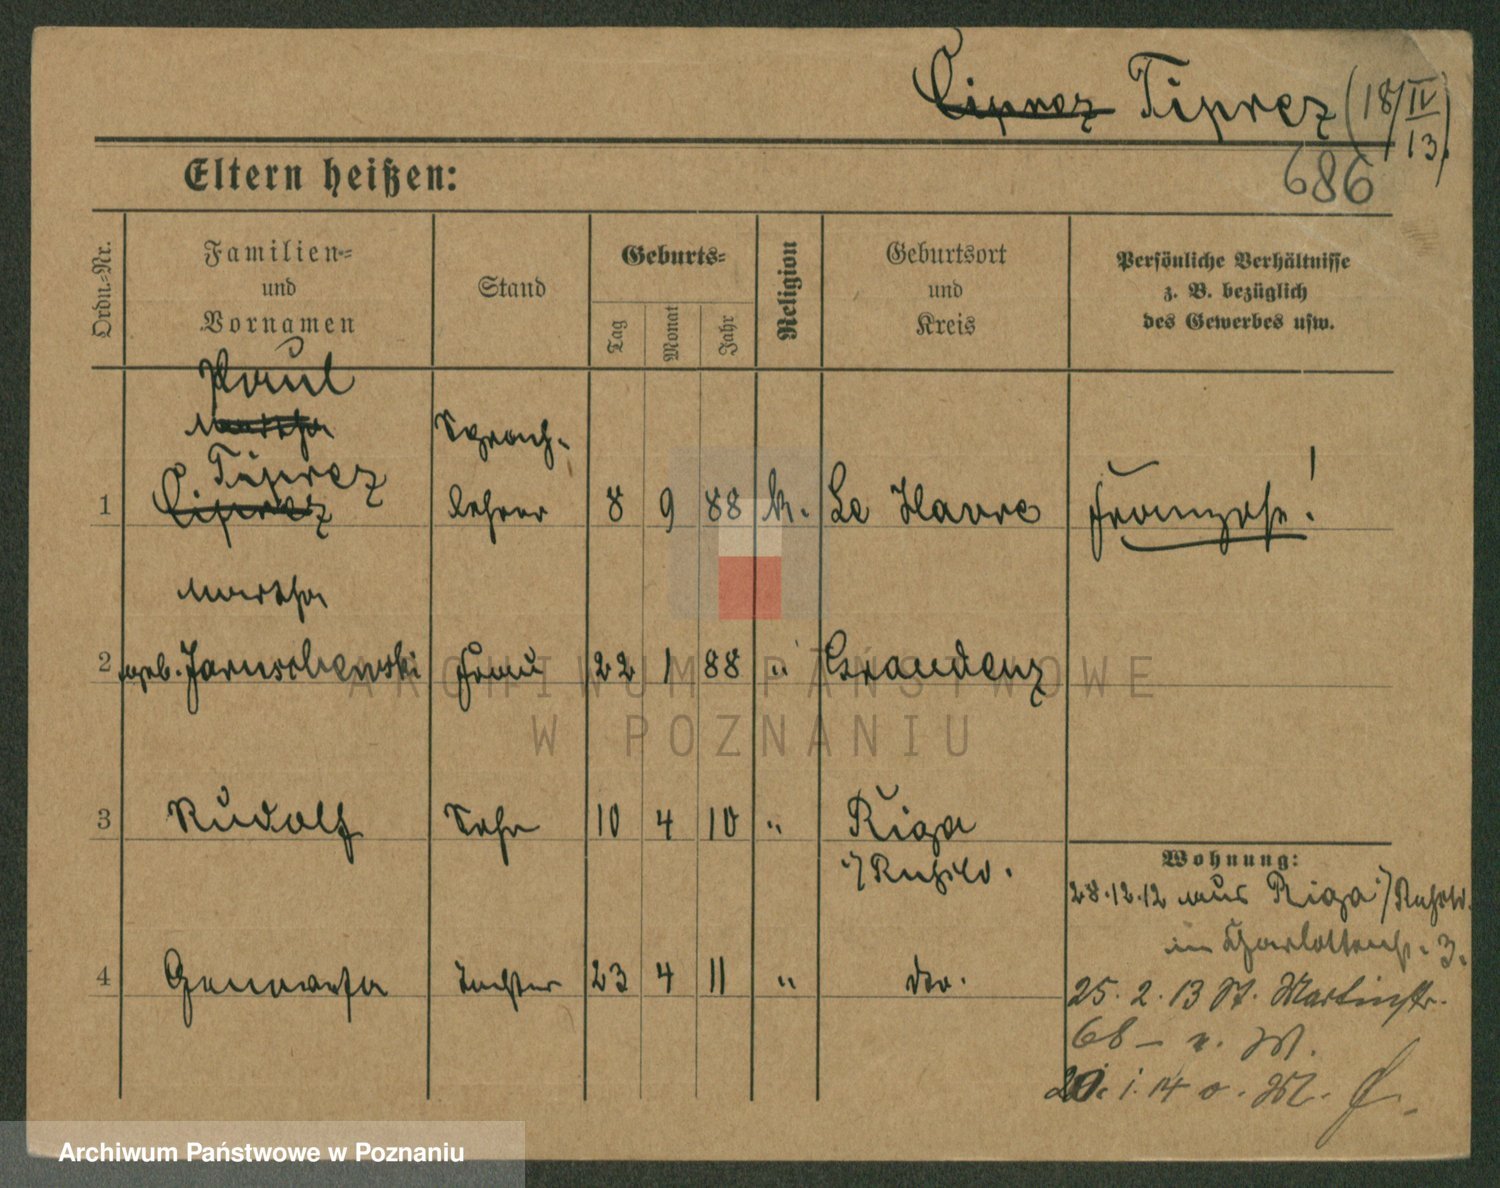 Ciprez Tiprez (18/IV 13.)
686
Eltern heißen:
Ordn.-Nr.
Familien- und Vornamen
Stand
Geburts-
Tag
Monat
Jahr
Religion
Geburtsort und Kreis
Persönliche Verhältnisse
z. B. bezüglich
des Gewerbes usw.
Paul
Martha
Sprach-
Tiprez
1 Ciprez lehrer 8 9 88 k. Le Havre Franzose!
Martha
2 geb. Jaruschewski Frau 22 1 88 " Graudenz
3 Rudolf Sohn 10 4 10 " Riga
i/ Rußld.
4 Genowefa Tochter 23 4 11 " dto.
Wohnung:
28.12.12 aus Riga i/ Rußld.
in Charlottenstr. 3.
25. 2. 13 St. Martinstr.
68 — v. W.
20. 1. 14 o. M.
ARCHIWUM PAŃSTWOWE
W POZNANIU
Archiwum Państwowe w Poznaniu